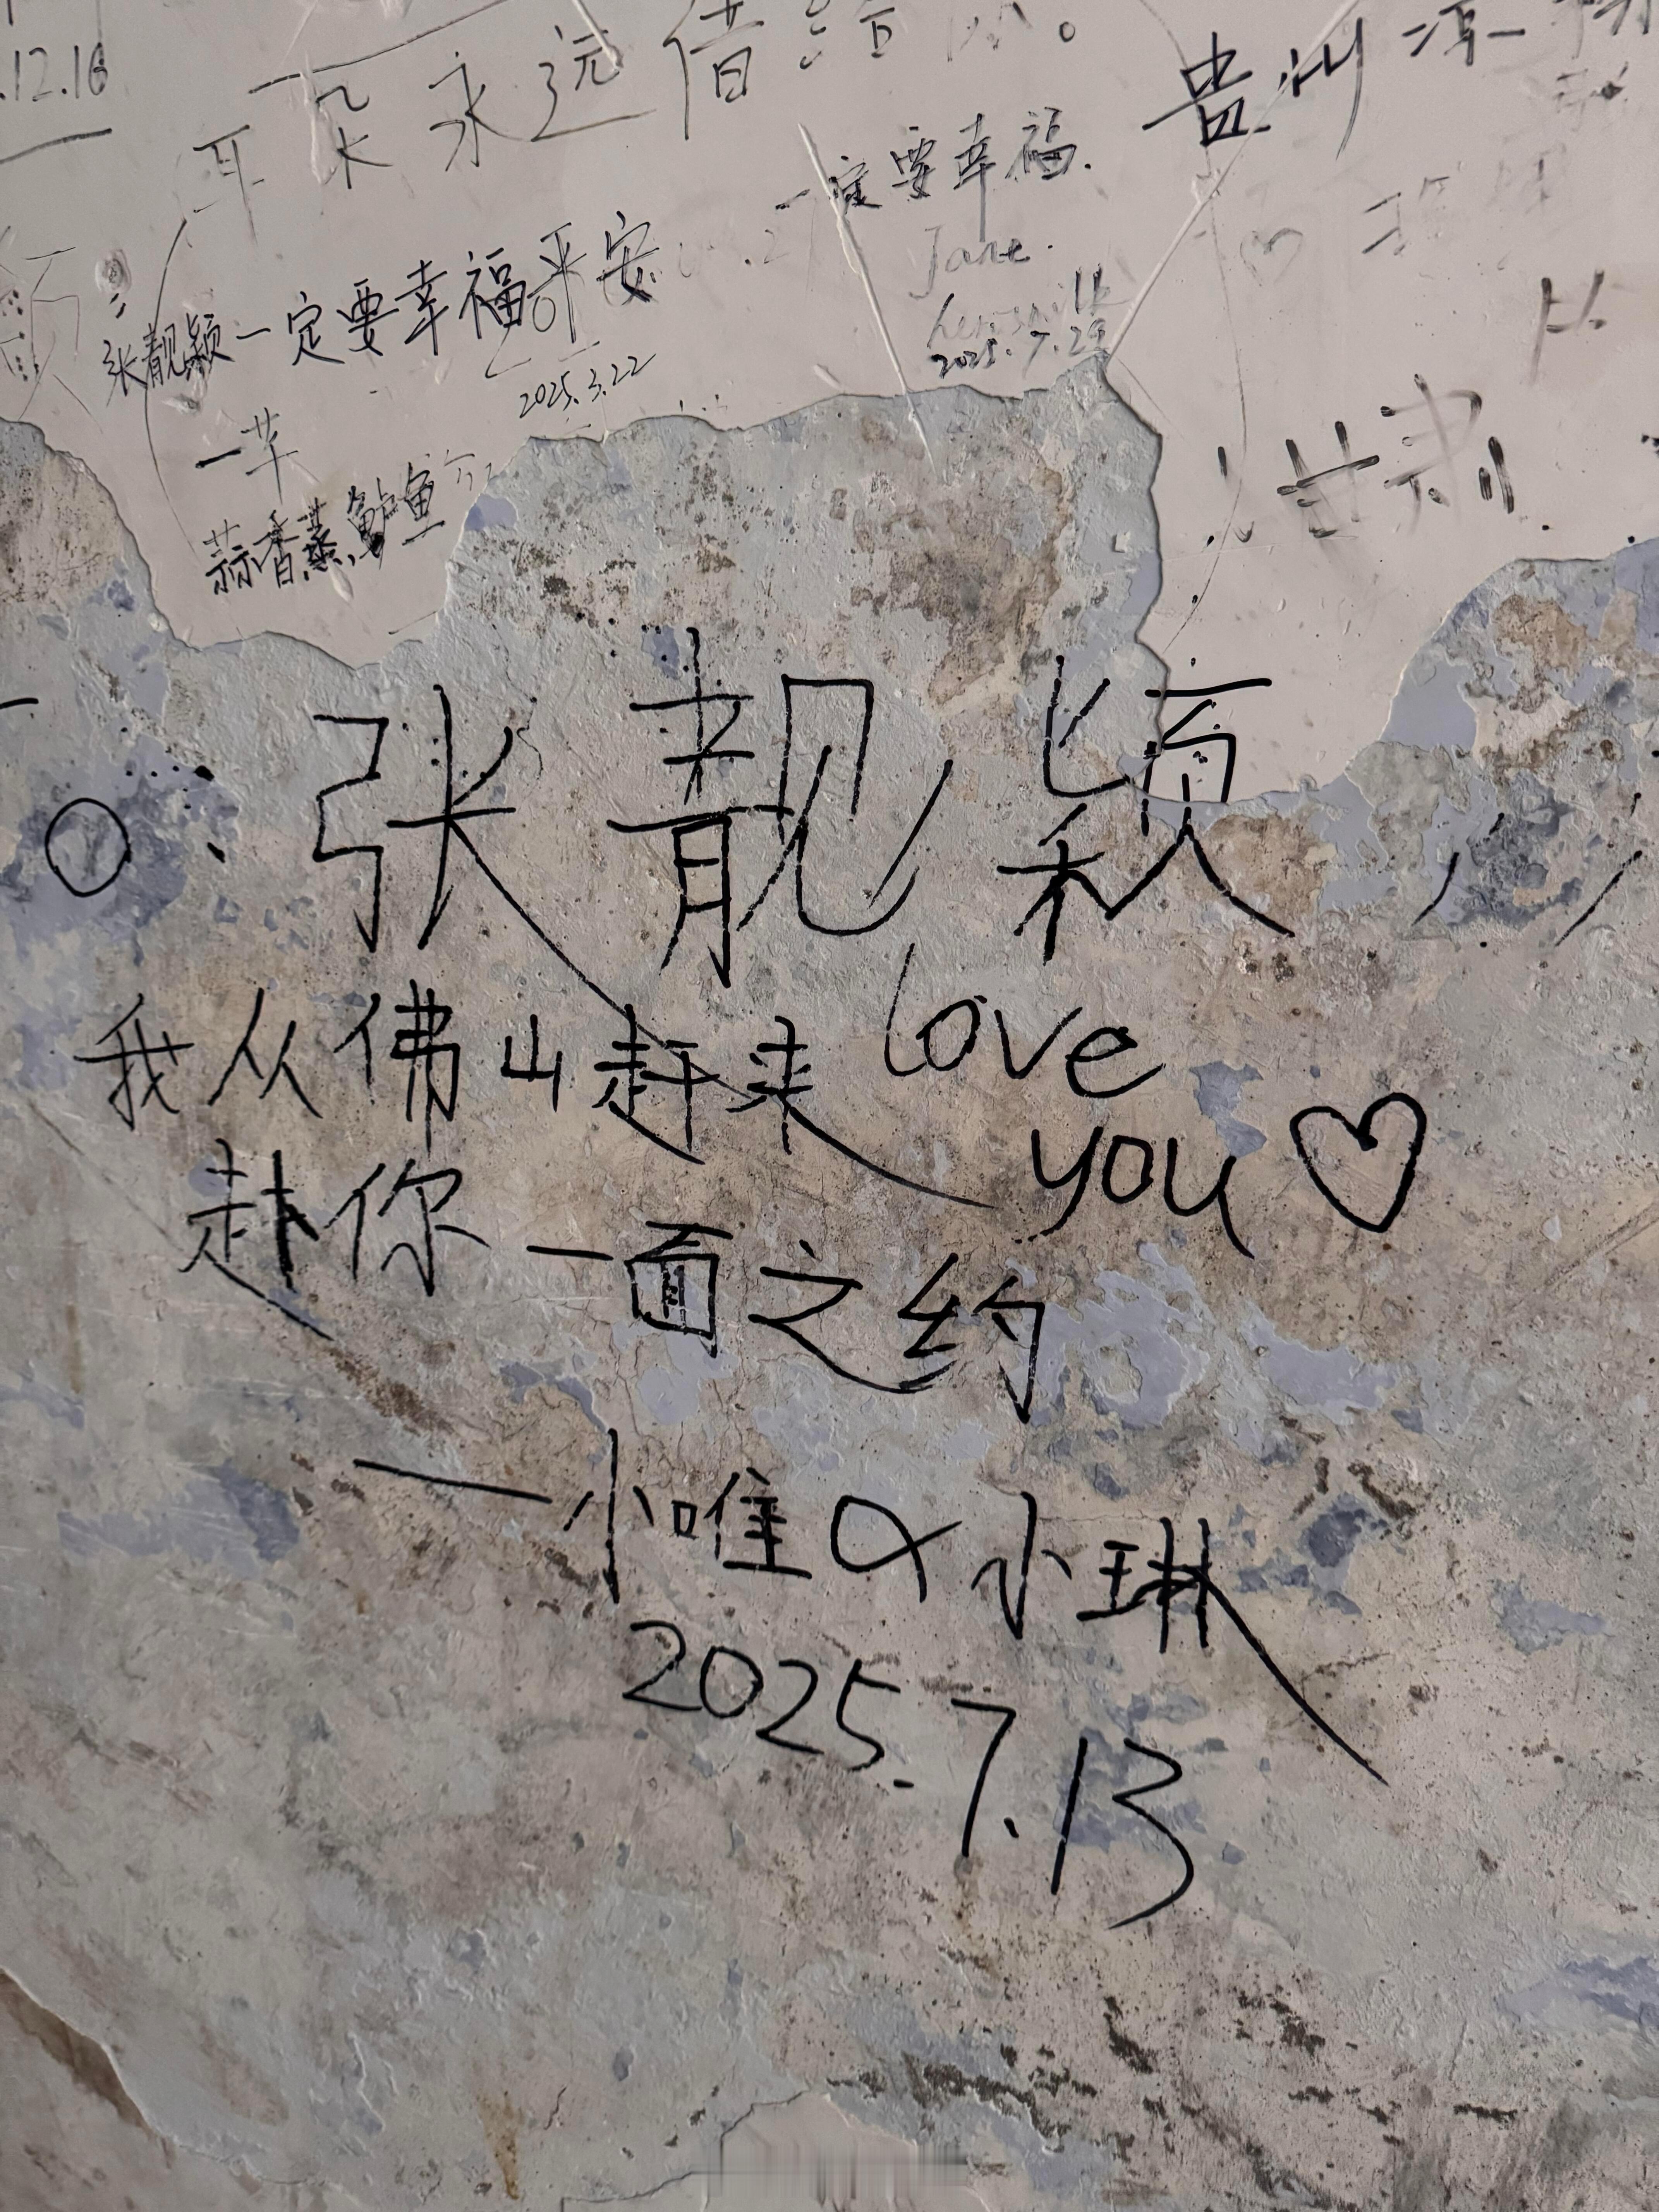 .12.16
耳朵永远借给你。
贵州
一定要幸福.
Jane.
2025.7.29
张靓颖一定要幸福平安
2025.3.22
一芊
蒜香蒸鲈鱼
甘肃
张靓颖
我从佛山赶来
love
you♡
赴你一面之约
一小唯α小琳
2025.7.13